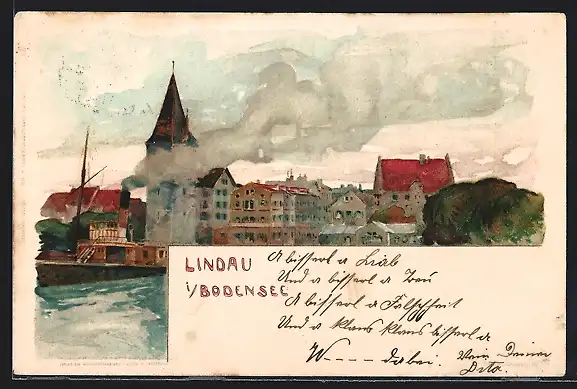 LINDAU
i/BODENSEE
A bisserl a Liab
Und a bisserl a Treu
A bisserl a Falschheit
Und a klans klans bisserl a
W---- dabei. Von Deiner